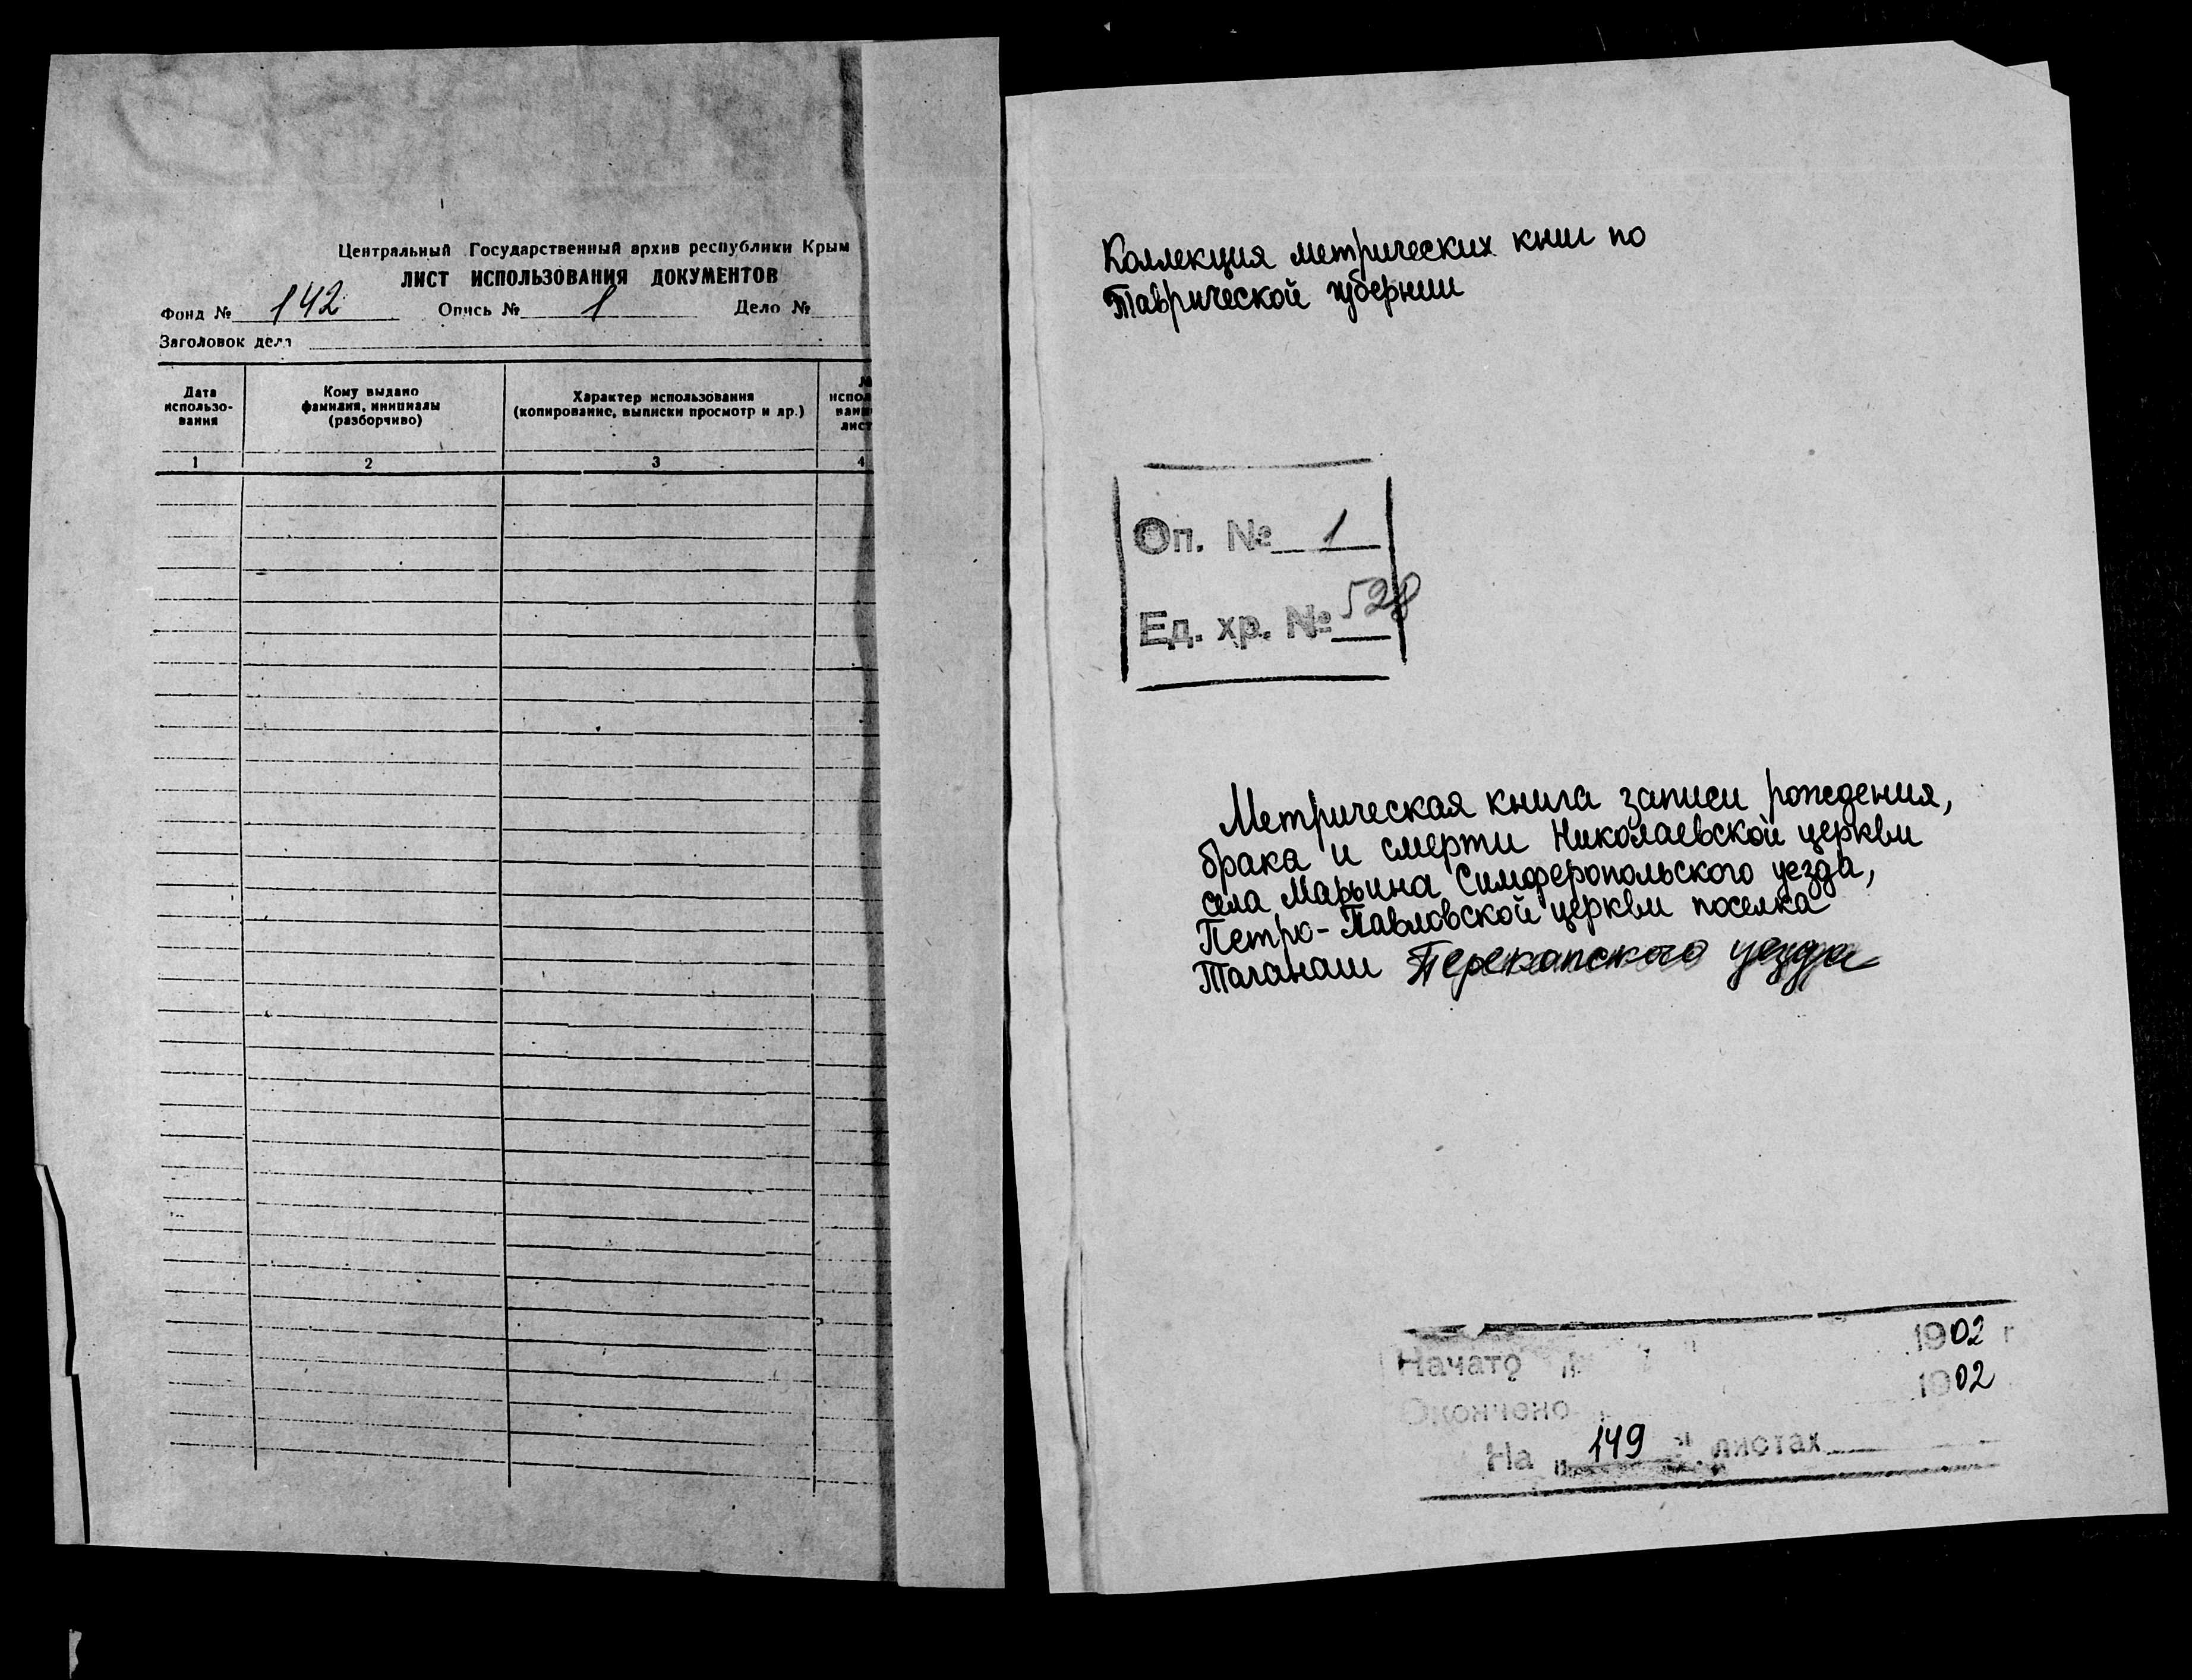 Центральный Государственный архив республики Крым
ЛИСТ ИСПОЛЬЗОВАНИЯ ДОКУМЕНТОВ
Фонд № 142 Опись № 1 Дело №
Заголовок дела
Дата использо-вания
Кому выдано фамилия, инициалы (разборчиво)
Характер использования (копирование, выписки просмотр и др.)
1 2 3 4
Коллекция метрических книг по
Таврической губернии
Оп. № 1
Ед. хр. № 528
Метрическая книга записи рождения,
брака и смерти Николаевской церкви
села Марьина Симферопольского уезда,
Петро-Павловской церкви поселка
Таганаш Перекопского уезда
Начато 1902 г
Окончено 1902
На 149 листах